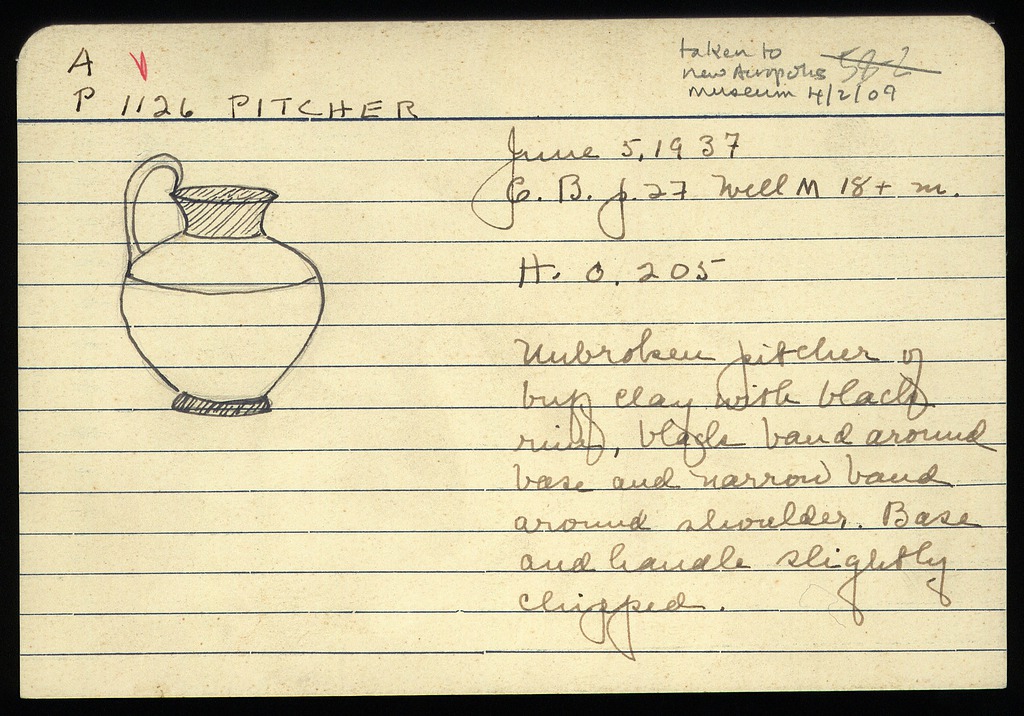 A V
P 1126 PITCHER
taken to
new Acropolis
museum 4/2/09
582
June 5, 1937
C. B. p. 27 Well M 18+ m.
H. 0.205
Unbroken pitcher of
buff clay with black
rim, black band around
base and narrow band
around shoulder. Base
and handle slightly
chipped.